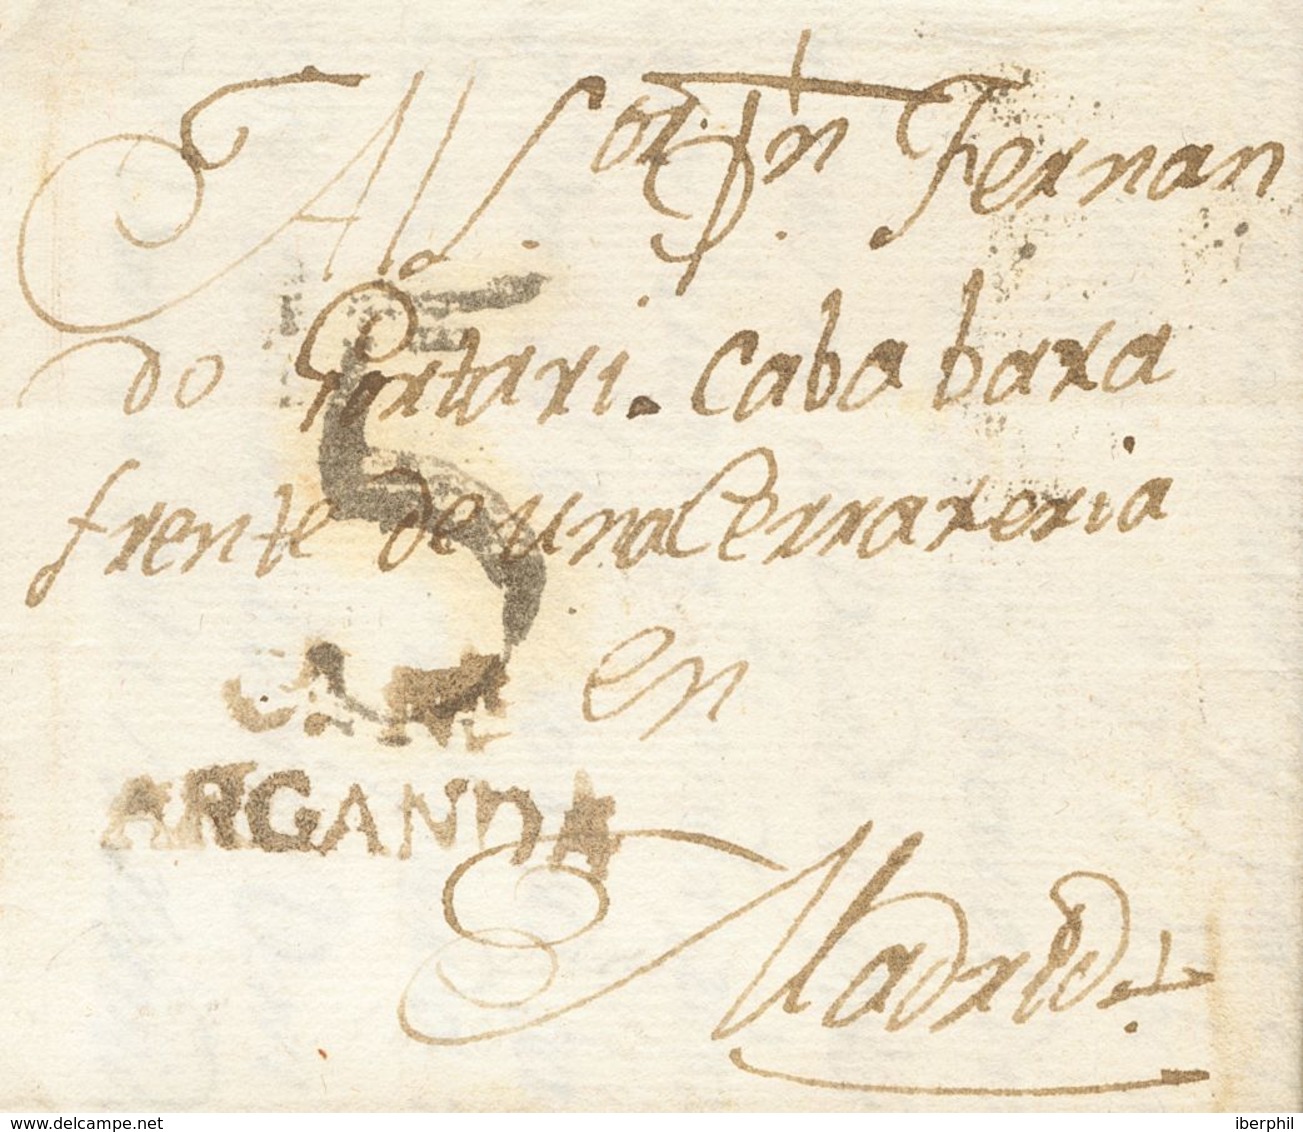 Al Sor. Dn Fernan
do Patari. Caba baxa
frente de una Cerraxeria
en
5
ARGANDA
Madrid
www.delcampe.net
iberphil